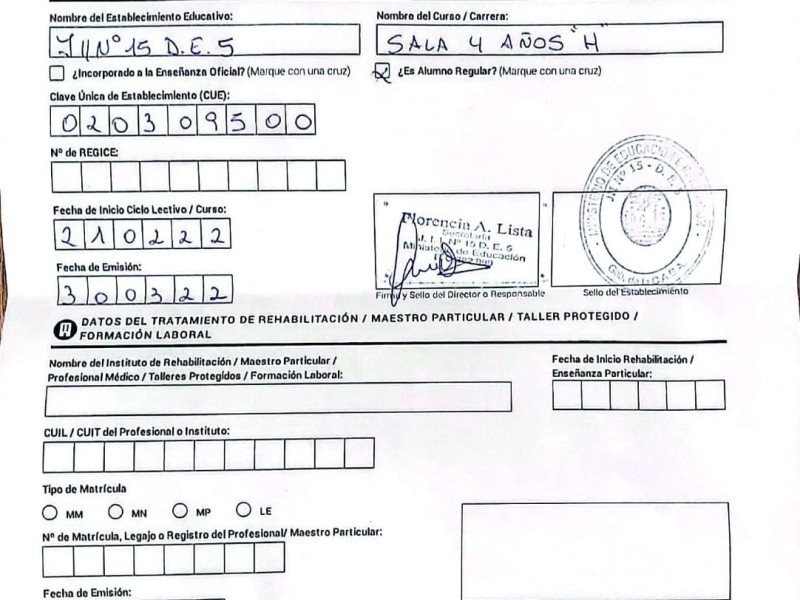 Nombre del Establecimiento Educativo:
Nombre del Curso / Carrera:
JII Nº 15 D.E.5
SALA 4 AÑOS "H"
¿Incorporado a la Enseñanza Oficial? (Marque con una cruz)
¿Es Alumno Regular? (Marque con una cruz)
Clave Única de Establecimiento (CUE):
020309500
Nº de REGICE:
Fecha de Inicio Ciclo Lectivo / Curso:
210222
Fecha de Emisión:
300322
Florencia A. Lista
Secretaria
J.I.I. Nº 15 D. E. 5
Ministerio de Educación
Firma y Sello del Director o Responsable
MINISTERIO DE EDUCACIÓN
J.I.I Nº 15 - D.E. 5
G.C.A.B.A.
Sello del Establecimiento
DATOS DEL TRATAMIENTO DE REHABILITACIÓN / MAESTRO PARTICULAR / TALLER PROTEGIDO /
FORMACIÓN LABORAL
Nombre del Instituto de Rehabilitación / Maestro Particular /
Profesional Médico / Talleres Protegidos / Formación Laboral:
Fecha de Inicio Rehabilitación /
Enseñanza Particular:
CUIL / CUIT del Profesional o Instituto:
Tipo de Matrícula
MM MN MP LE
Nº de Matrícula, Legajo o Registro del Profesional/ Maestro Particular:
Fecha de Emisión: